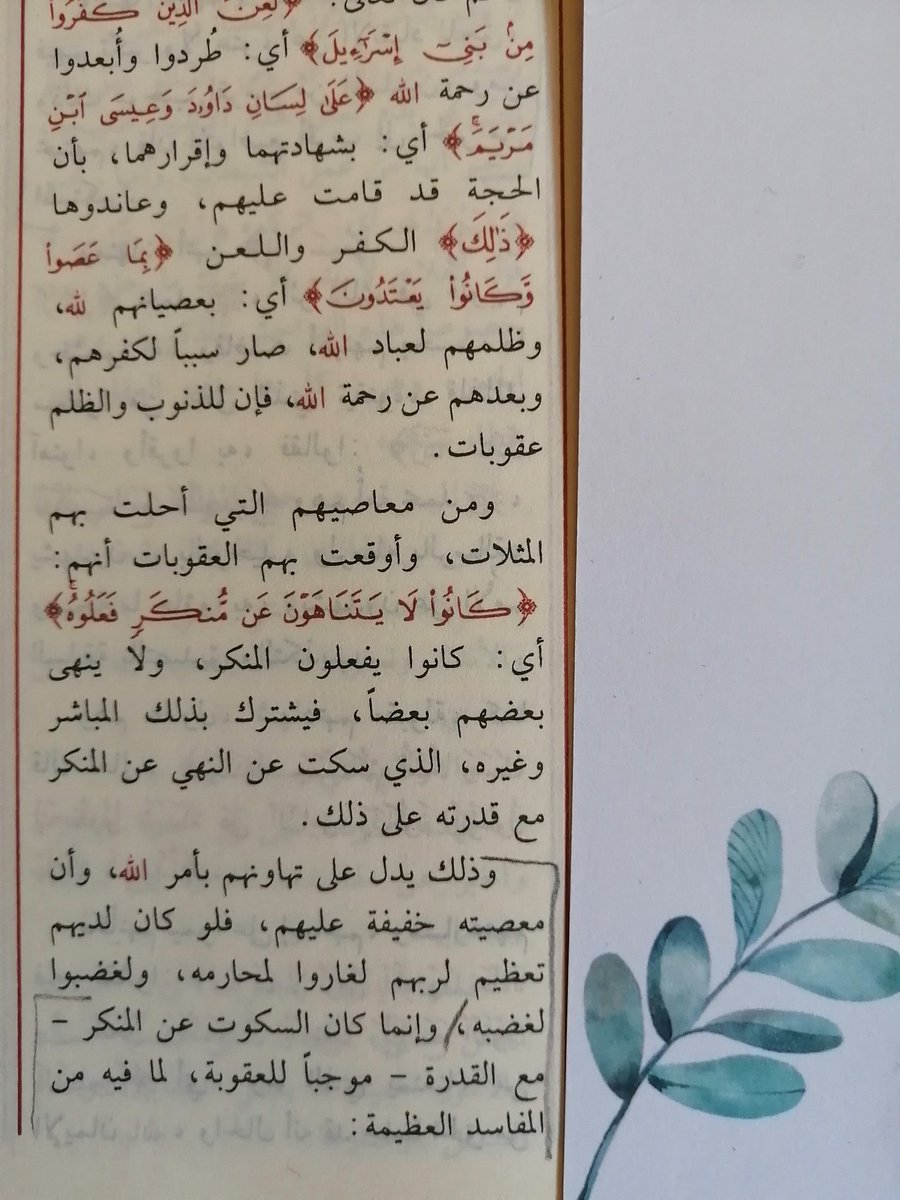 ﴿لُعِنَ ٱلَّذِينَ كَفَرُوا۟
مِنۢ بَنِىٓ إِسْرَٰٓءِيلَ﴾ أي: طُردوا وأُبعدوا
عن رحمة الله ﴿عَلَىٰ لِسَانِ دَاوُۥدَ وَعِيسَى ٱبْنِ
مَرْيَمَ ۚ﴾ أي: بشهادتهما وإقرارهما، بأن
الحجة قد قامت عليهم، وعاندوها
﴿ذَٰلِكَ﴾ الكفر واللعن ﴿بِمَا عَصَوا۟
وَّكَانُوا۟ يَعْتَدُونَ﴾ أي: بعصيانهم لله،
وظلمهم لعباد الله، صار سبباً لكفرهم،
وبعدهم عن رحمة الله، فإن للذنوب والظلم
عقوبات.
ومن معاصيهم التي أحلت بهم
المثلات، وأوقعت بهم العقوبات أنهم:
﴿كَانُوا۟ لَا يَتَنَاهَوْنَ عَن مُّنكَرٍ فَعَلُوهُ ۚ﴾
أي: كانوا يفعلون المنكر، ولا ينهى
بعضهم بعضاً، فيشترك بذلك المباشر
وغيره، الذي سكت عن النهي عن المنكر
مع قدرته على ذلك.
وذلك يدل على تهاونهم بأمر الله، وأن
معصيته خفيفة عليهم، فلو كان لديهم
تعظيم لربهم لغاروا لمحارمه، ولغضبوا
لغضبه، وإنما كان السكوت عن المنكر –
مع القدرة – موجباً للعقوبة، لما فيه من
المفاسد العظيمة: